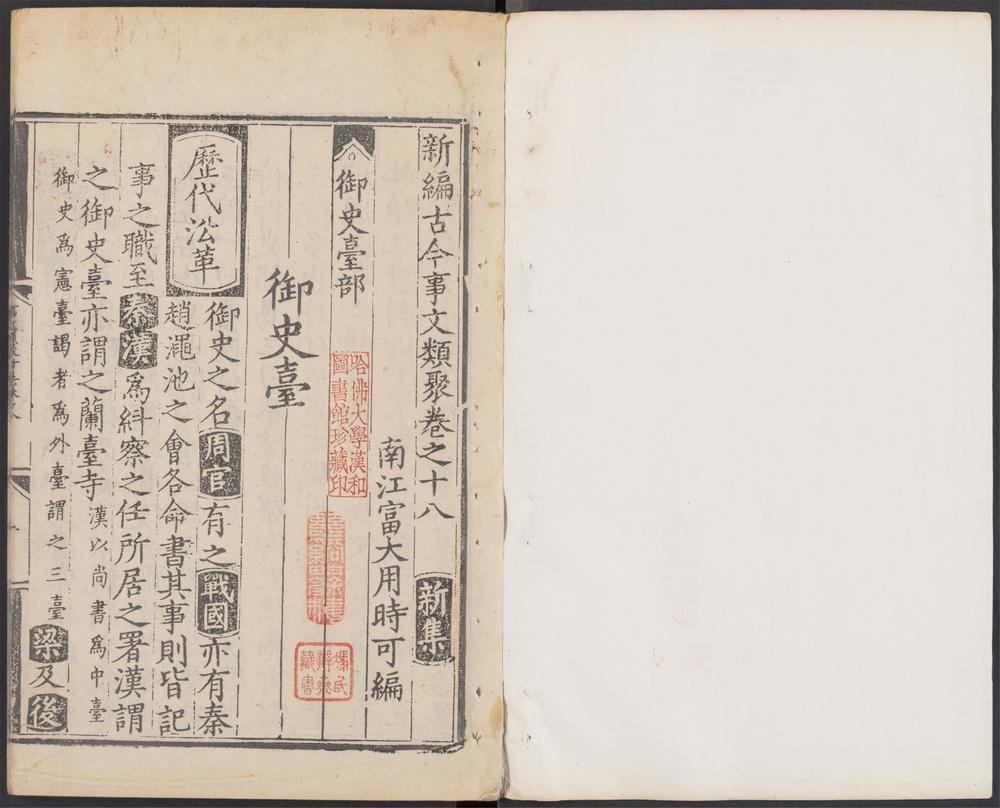 新編古今事文類聚卷之十八 新集
南江富大用時可編
御史臺部
御史臺
歷代㳂革
御史之名周官有之戰國亦有秦
趙澠池之會各命書其事則皆記
事之職至秦漢爲糾察之任所居之署漢謂
之御史臺亦謂之蘭臺寺漢以尚書爲中臺
御史爲憲臺謁者爲外臺謂之三臺梁及後
哈佛大學漢和
圖書館珍藏印